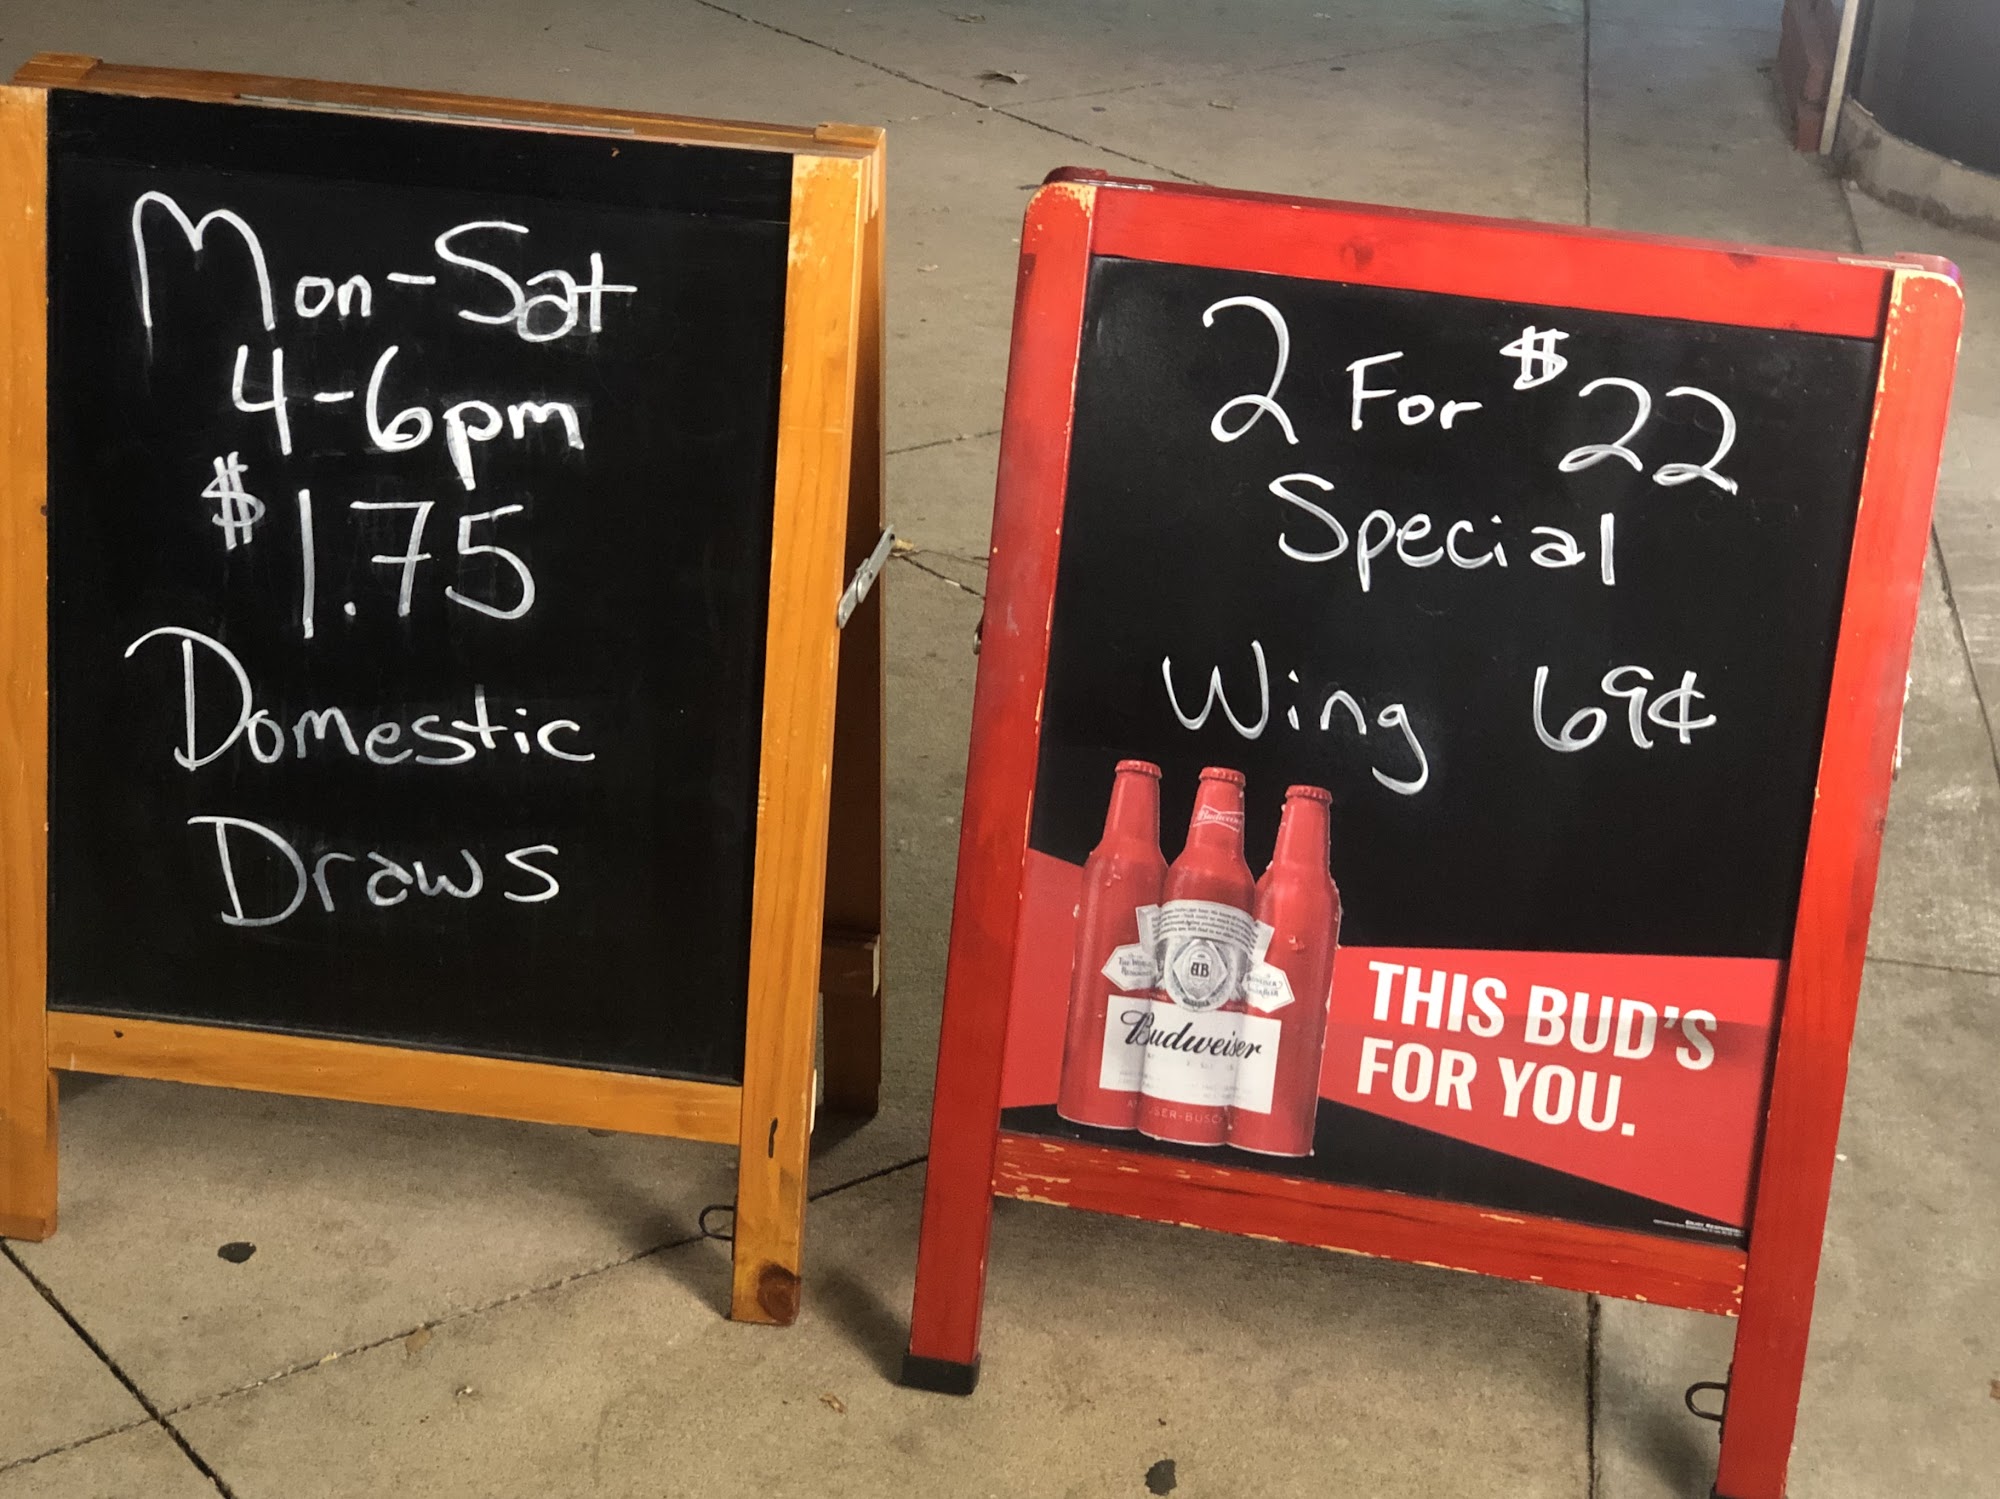 Mon-Sat
4-6pm
$1.75
Domestic
Draws
2 For $22
Special
Wing 69¢
Budweiser
AB
Budweiser
THIS BUD'S
FOR YOU.